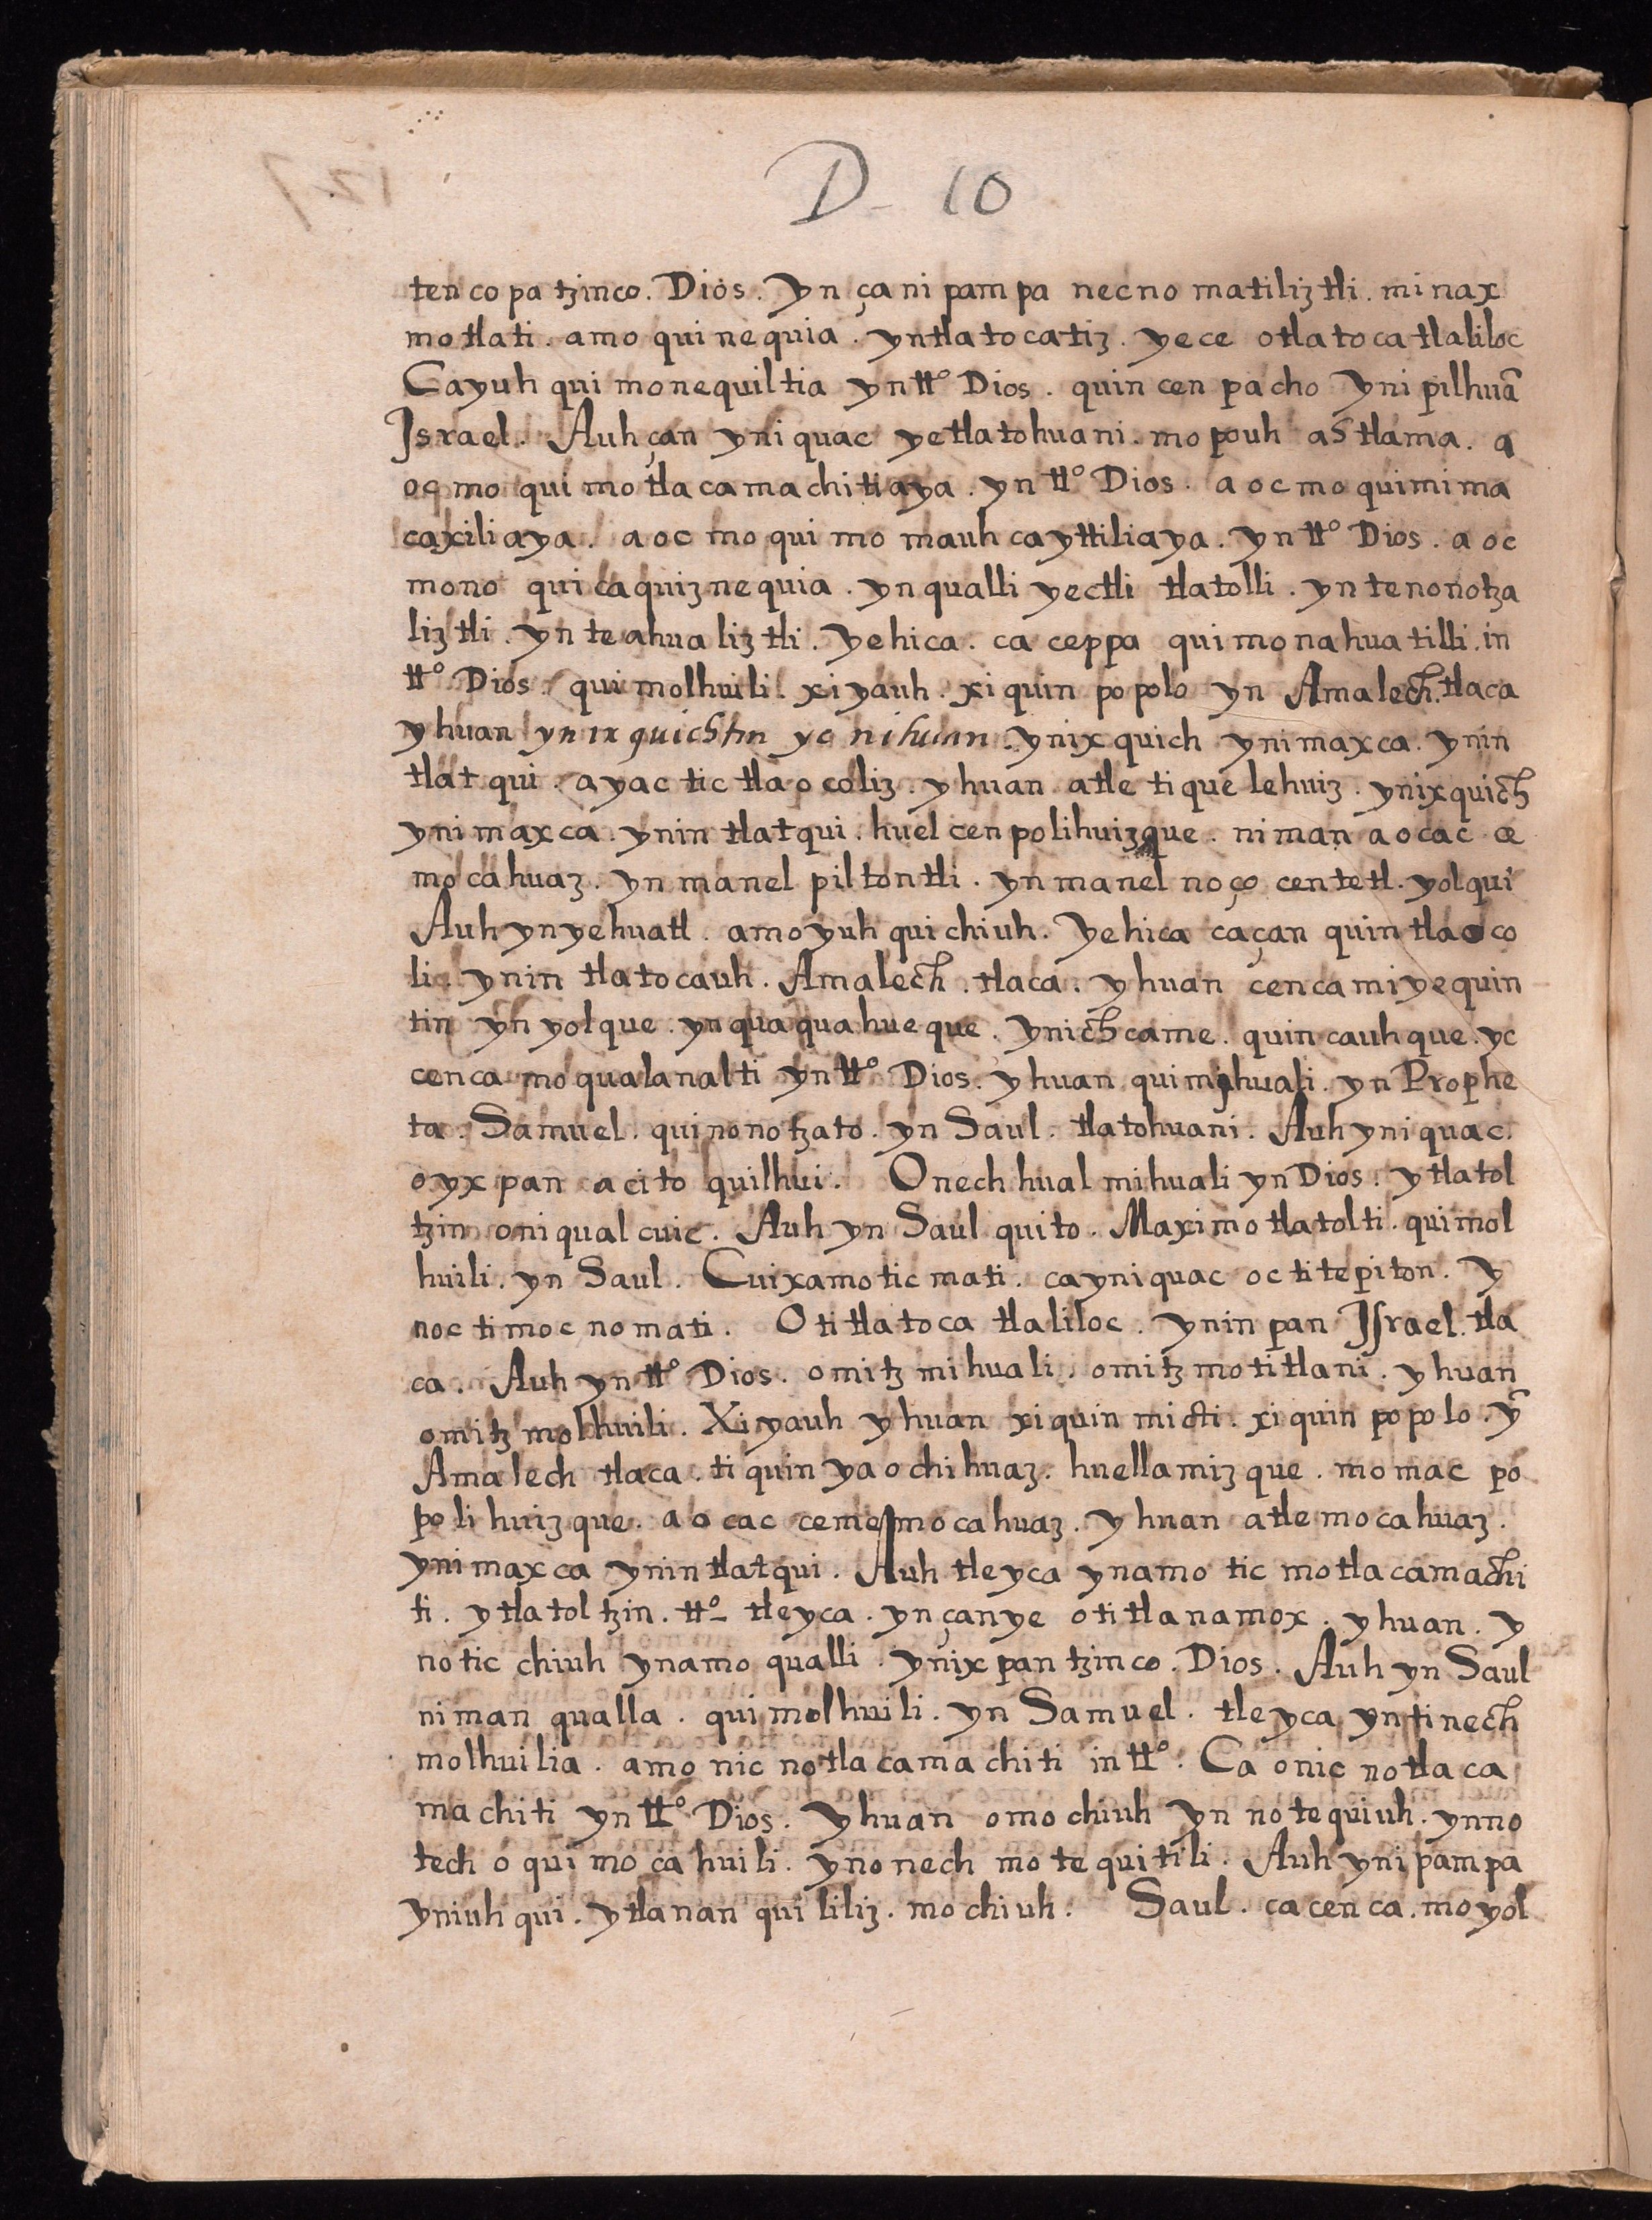 D- 10
ten co pa tzinco. Dios. Yn çani pampa necno matiliztli. minax
motlati. amo quinequia. yntlatocatiz. yece otlatocatlaliloc
Cayuh qui monequiltia yn tt.º Dios. quin cen pacho Yni pilhuã
Israel. Auh çan yniquac yetlatohuani. mopouh astlama. a
oc mo qui motlacamachitiaya. yn tt.º Dios. aocmo quimima
caxiliaya. aoc mo qui mo mauh cayttiliaya. yn tt.º Dios. aoc
mono quicaquiznequia. yn qualli yectli tlatolli. yn tenonotza
liztli. yn teahualiztli. Yehica. ca ceppa quimonahuatilli. in
tt.º Dios. quimolhuili. xiyauh. xiquin popolo yn Amalech. tlaca
yhuan ynixquichtin yc nihuan. ynixquich ynimaxca. ynin
tlatqui. ayac tic tlaocoliz. yhuan atle tiquelehuiz. ynixquich
ynimaxca. ynin tlatqui. huel cen polihuizque. niman aocac ce
mocahuaz. yn manel piltontli. yn manel noço centetl. yolqui
Auh ynyehuatl. amoyuh quichiuh. Yehica caçan quin tlaoco
li. ynin tlatocauh. Amalech. tlaca. yhuan cencamiyequin
tin yn yolque. yn quaquahueque. ynichcame. quincauhque. yc
cenca moqualanalti yn tt.º Dios. yhuan quimihuali. yn Prophe
ta. Samuel. quinonotzato. yn Saul. tlatohuani. Auh yniquac.
oyxpan acito quilhui. Onech hual mihuali yn Dios. ytlatol
tzin oniqualcuic. Auh yn Saul quito. Maximotlatolti. quimol
huili. yn Saul. Cuixamo ticmati. cayniquac oc titepiton. Y
noc timocnomati. Otitlatoca tlaliloc. Yninpan Israel. tla
ca. Auh yn tt.º Dios. omitz mihuali. omitz motitlani. yhuan
omitz molhuili. Xiyauh yhuan xiquin micti. xiquin popolo. yˉ
Amalech tlaca. tiquin yaochihuaz. huellamizque. momac po
polihuizque. aocac ceme mocahuaz. yhuan atle mocahuaz.
ynimaxca ynin tlatqui. Auh tleyca ynamo tic motlacamachi
ti. ytlatoltzin. tt.º tleyca. ynçanye otitlanamox. yhuan. y
notic chiuh ynamo qualli. ynixpantzinco. Dios. Auh yn Saul
niman qualla. quimolhuili. yn Samuel. tleyca yntinech
molhuilia. amo nic notlacamachiti in tt.º. Ca onic notlaca
machiti yn tt.º Dios. Yhuan omochiuh yn notequiuh. ynno
tech o qui mo ca huili. ynonech motequitili. Auh ynipampa
yniuhqui. ytlananquililiz. mochiuh. Saul. cacenca. moyol